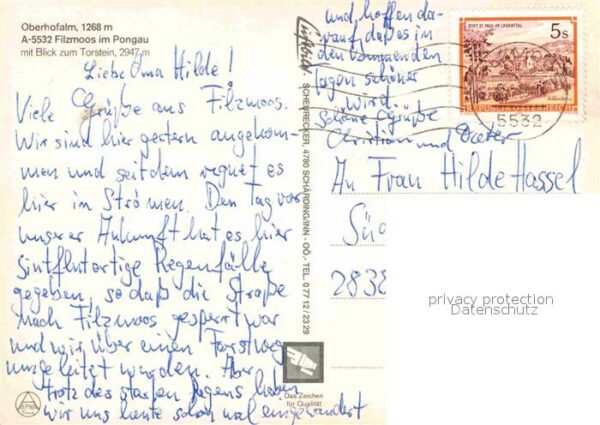 Oberhofalm, 1268 m
A-5532 Filzmoos im Pongau
mit Blick zum Torstein, 2947 m
Liebe Oma Hilde!
Viele Grüße aus Filzmoos.
Wir sind hier gestern angekom-
men und seitdem regnet es
hier in Strömen. Den Tag vor
unserer Ankunft hat es hier
sintflutartige Regenfälle
gegeben, so daß die Straße
nach Filzmoos gesperrt war
und wir über einen Forstweg
umgeleitet wurden. Aber
trotz des starken Regens haben
wir uns heute schon mal eingewandert
und hoffen da-
rauf, daß es in
den kommenden
Tagen schöner
wird.
Schöne Grüße
Christian und Dieter
Luftbild:
SCHERRECKER, 4780 SCHÄRDING/INN - OÖ. - TEL. 07712/2329
Das Zeichen
für Qualität
STIFT ST. PAUL IM LAVANTTAL
5s
REPUBLIK ÖSTERREICH
5532
An Frau Hilde Hassel
Süd
2838
privacy protection
Datenschutz